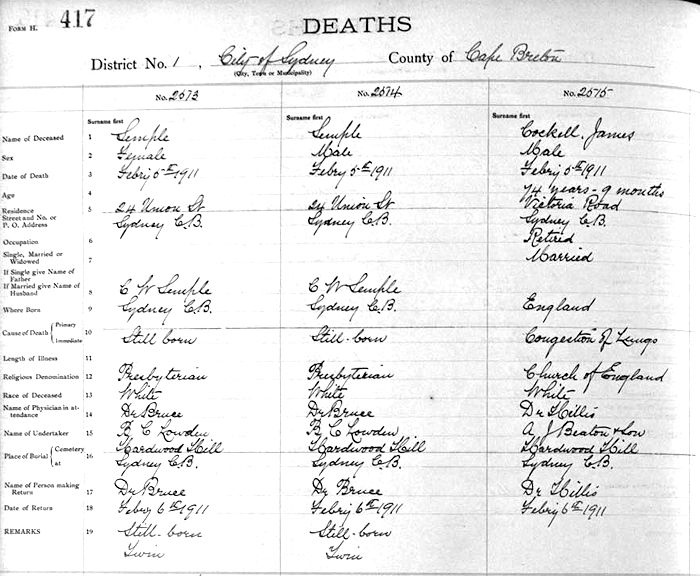 FORM H. 417
DEATHS
District No. 1, City of Sydney County of Cape Breton
(City, Town or Municipality)
No. 2573 No. 2574 No. 2575
Surname first Surname first Surname first
Name of Deceased 1 Semple Semple Cockell, James
Sex 2 Female Male Male
Date of Death 3 Febry 5th 1911 Febry 5th 1911 Febry 5th 1911
Age 4 74 years - 9 months
Residence 5 24 Union St 24 Union St Victoria Road
Street and No. or
P. O. Address Sydney C.B. Sydney C.B. Sydney C.B.
Occupation 6 Retired
Single, Married or
Widowed 7 Married
If Single give Name of
Father
If Married give Name of
Husband 8 C W Semple C W Semple
Where Born 9 Sydney C.B. Sydney C.B. England
Cause of Death Primary
Immediate 10 Still born Still-born Congestion of Lungs
Length of Illness 11
Religious Denomination 12 Presbyterian Presbyterian Church of England
Race of Deceased 13 White White White
Name of Physician in at-
tendance 14 Dr Bruce Dr Bruce Dr Hillis
Name of Undertaker 15 B C Lowden B C Lowden A J Beaton & Son
Place of Burial Cemetery 16 Hardwood Hill Hardwood Hill Hardwood Hill
at Sydney C.B. Sydney C.B. Sydney C.B.
Name of Person making
Return 17 Dr Bruce Dr Bruce Dr Hillis
Date of Return 18 Febry 6th 1911 Febry 6th 1911 Febry 6th 1911
REMARKS 19 Still-born Still-born
Twin Twin